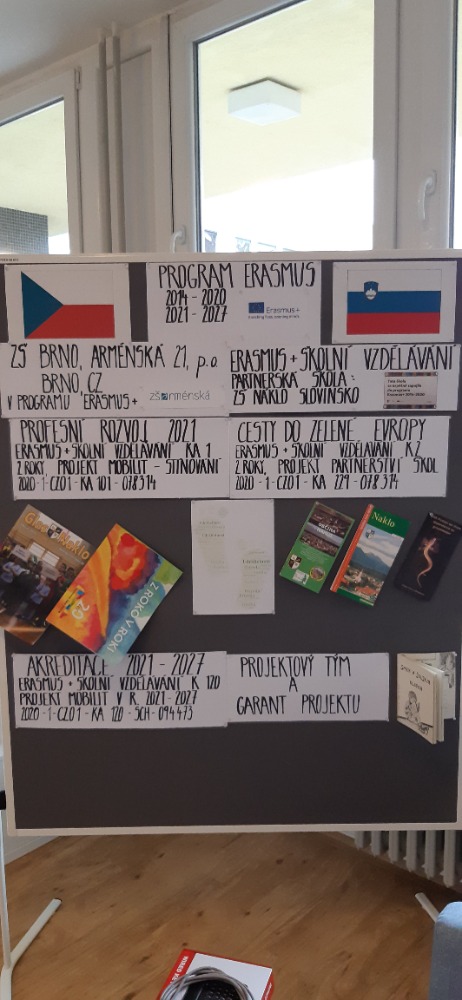 PROGRAM ERASMUS
2014 - 2020
2021 - 2027
Erasmus+
ZŠ BRNO, ARMÉNSKÁ 21, p.o.
BRNO, CZ
V PROGRAMU ERASMUS +
zšarménská
ERASMUS + ŠKOLNÍ VZDĚLÁVÁNÍ
PARTNERSKÁ ŠKOLA:
ZŠ NAKLO SLOVINSKO
PROFESNÍ ROZVOJ 2021
ERASMUS + ŠKOLNÍ VZDĚLÁVÁNÍ KA 1
2 ROKY, PROJEKT MOBILIT - STÍNOVÁNÍ
2020 - 1 - CZ01 - KA 101 - 078314
CESTY DO ZELENÉ EVROPY
ERASMUS + ŠKOLNÍ VZDĚLÁVÁNÍ K2
2 ROKY, PROJEKT PARTNERSTVÍ ŠKOL
2020 - 1 - CZ01 - KA 229 - 078314
Naklo
Z ROKO V ROKI
AKREDITACE 2021 - 2027
ERASMUS + ŠKOLNÍ VZDĚLÁVÁNÍ K 120
PROJEKT MOBILIT V R. 2021 - 2027
2020 - 1 - CZ01 - KA 120 - SCH - 094473
PROJEKTOVÝ TÝM
A
GARANT PROJEKTU